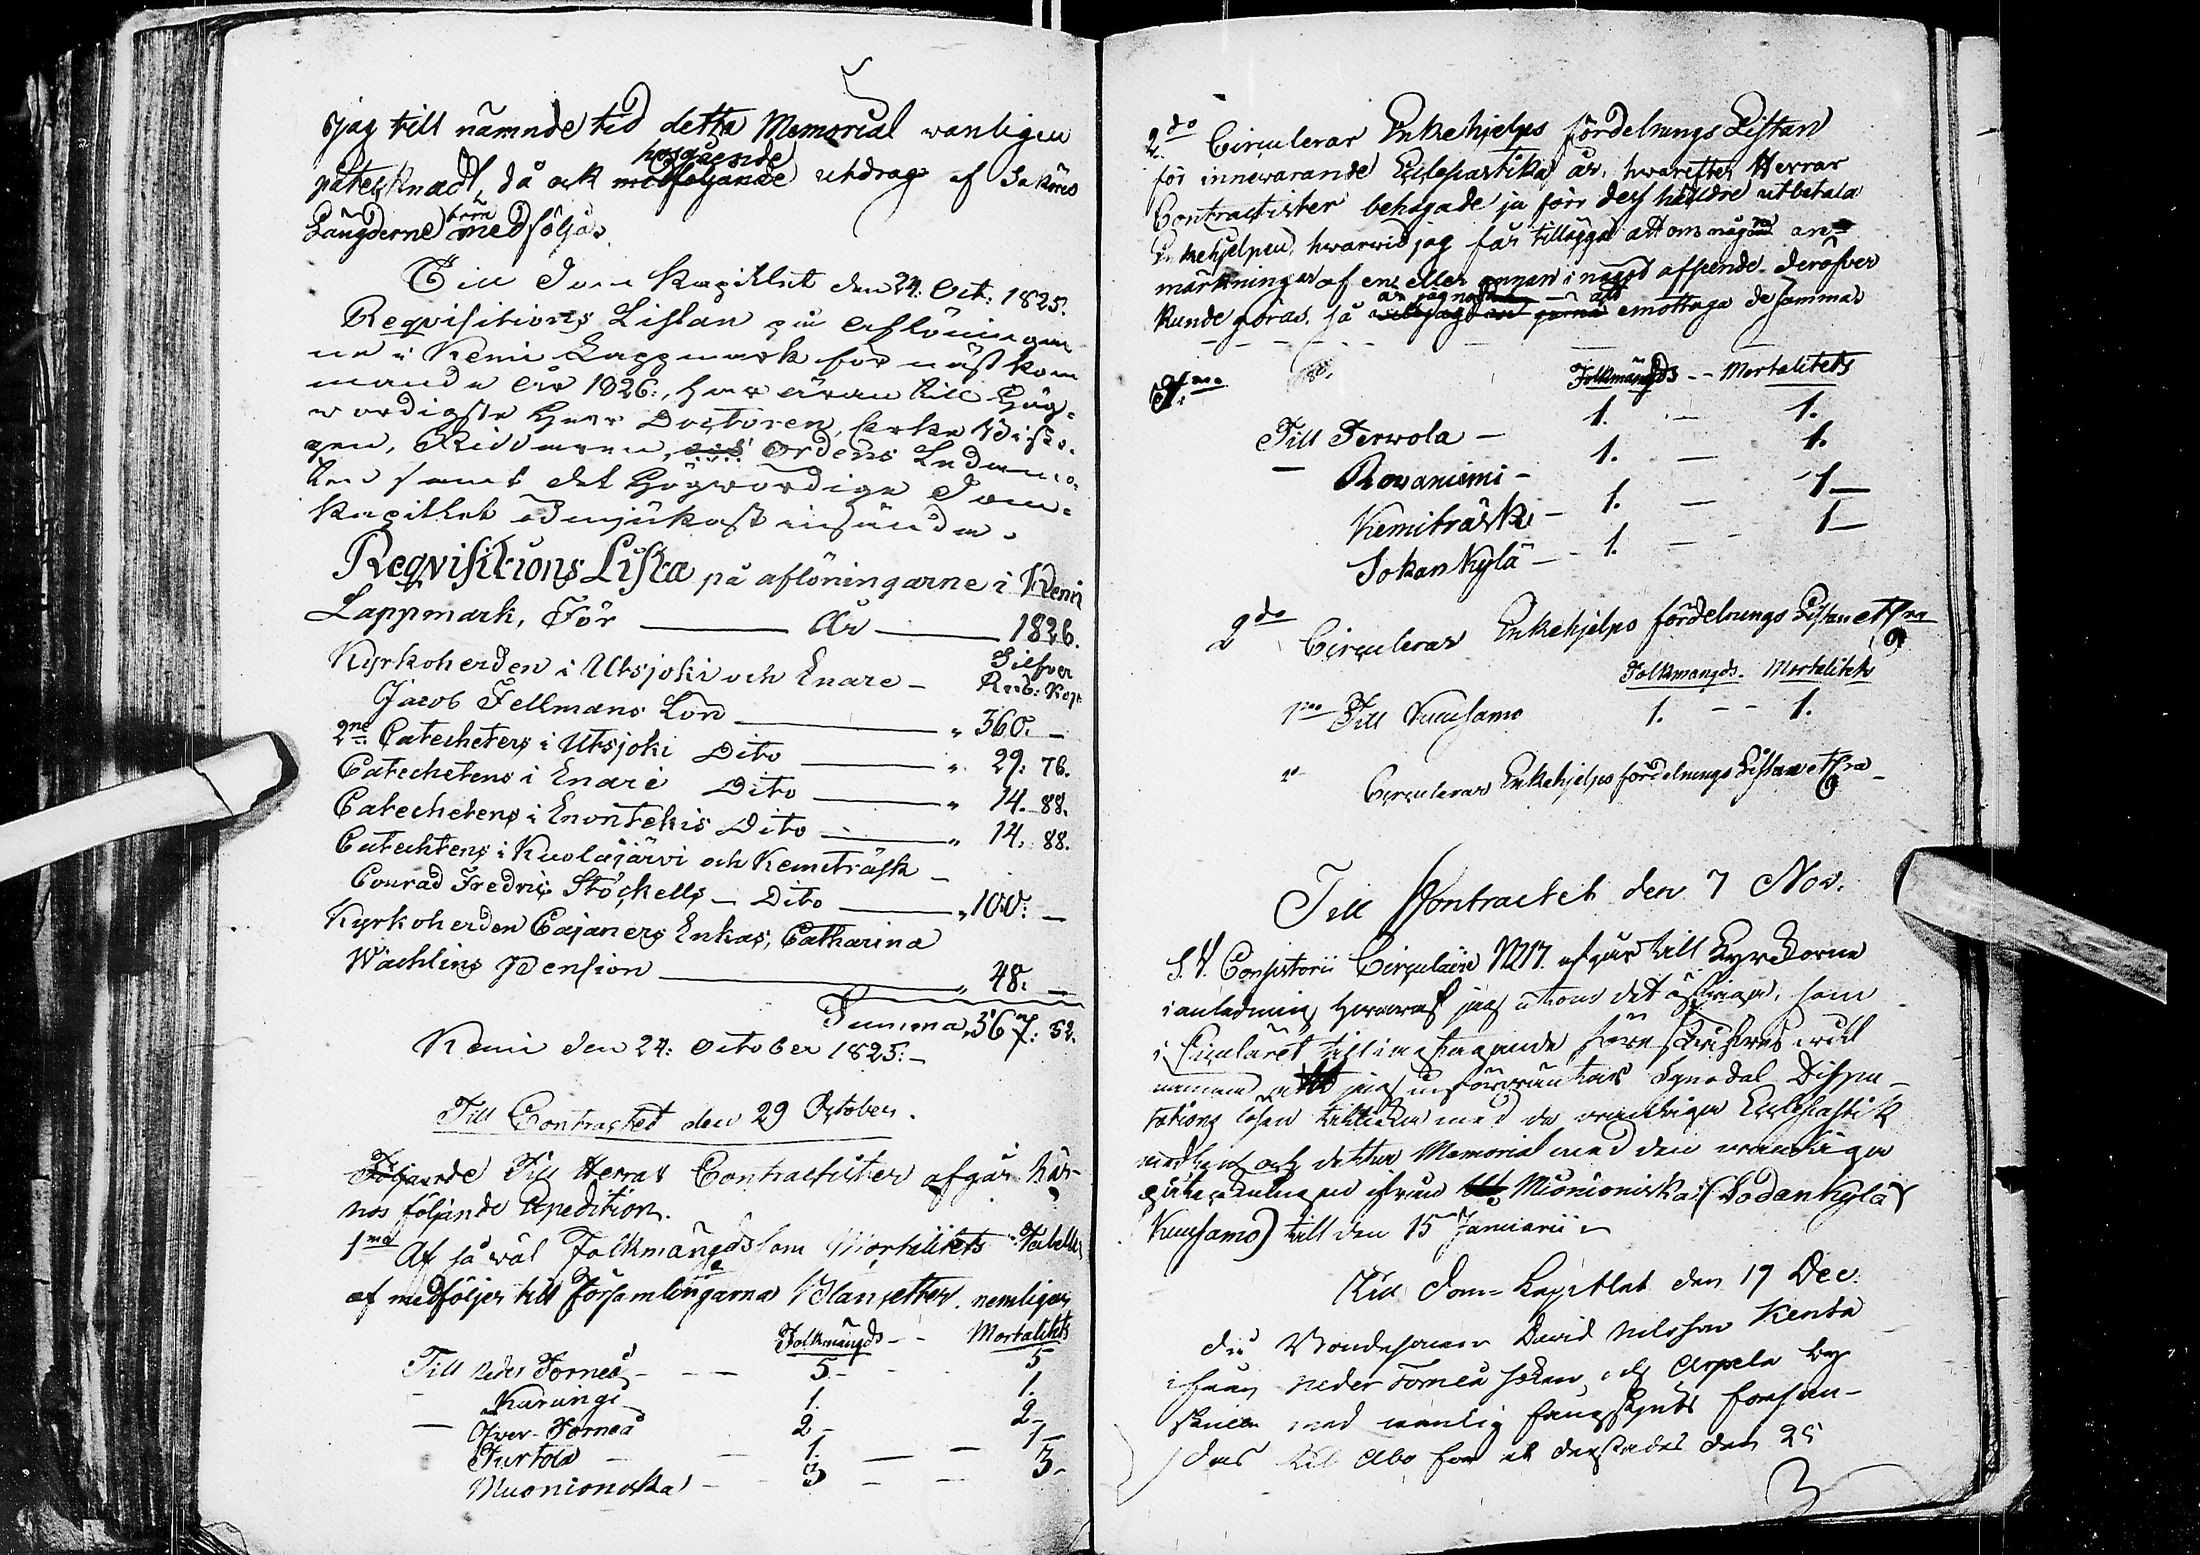 jag till nämnde tid detta Memorial vanligen
hosgående
påtecknadt, då ock medföljande utdrag af Sakörs
Längderne medföljas.
Till Dom Kapitlet den 24: Oct: 1825.
Reqvisitions Listan på aflöningar
ne i Kemi Lappmark för nästkom
mande år 1826:, har äran till Hög-
wördigste Herr Doctoren, Erke Bisko-
pen, Riddaren, och Ordens Ledamo-
ten samt det Högwördige Dom-
Kapitlet ödmjukast insända.
Reqvisitions Lista på aflöningarne i Kemi
Lappmark, För År 1826.
Silfver
Kyrkoherden i Utsjoki och Enare - Rub: Kop
Jacob Fellmans Lön " 360: -
2ne Catecheters i Utsjoki Dito " 29: 76.
Catechetens i Enare Dito " 14. 88.
Catechetens i Enontekis Dito " 14. 88.
Catechtens i Kuolajärvi och Kemiträsk -
Conrad Fredric Stöckells - Dito " 100: -
Kyrkoherden Cajaners Enkas, Catharina
Wachlins Pension " 48. -
Summa 567: 52.
Kemi den 24: October 1825. -
Till Contractet den 29 October.
Följande Till Herrar Contractister afgår här-
hos följande Expedition.
1mo Af så wäl Folkmängds som Mortalitets Tabeller
af medföljer till Församlingarna Blanketter. nemligen
Folkmängds - - Mortalitets
Till Neder Torneå - - - 5. - 5
- Karungi 1. 1.
- Öfver-Torneå 2 - 2 -
Turtola - - 1. - - 1 -
Muonioniska - 3 - - 3 -
2do Circulerar Enkehjelps fördelnings Listan
för innewarande Ecclesiastika år, hwarefter Herrar
Contractister behagade ju förr dess heldre utbetala
Enkehjelpen, hwarwid jag får tillägga att om några an-
märkningar af en eller annan i något afseende deröfver
kunde göras, så emottaga desamma
Folkmängds - - Mortalitets
Till Terwola - 1. - 1.
- Rovaniemi - 1. - 1.
Kemiträsk - 1. - 1 -
SodanKylä - - 1. - - 1 -
2do Circulerar Enkehjelps fördelnings Listan etc
Folkmängds. Mortalitets
1mo Till Kuusamo 1. - - 1.
Circulerar Enkehjelps fördelnings Listan etc -
Till Contractet den 7 Nov.
S. V. Consistorii Circulaire N 217. afgår till Kyrkorne
i anledning hwaraf jag utom det öfriga, som
i Circuläret till iagttagande föreskrifves, vill
att jag Synodal Dispu-
tations lösen tillika med de vanliga Ecclesiastik
och detta Memorial med den vanliga
påteckningen ifrån Muonioniska (SodanKylä
Kuusamo) till den 15 Januarii
Till Dom-Kapitlet den 19 Dec.
Då Bondesonen David Nilsson Kenta
ifrån Neder Torneå socken och Arpela by
med vanlig fångskjuts försän-
das till Åbo för at derstädes den 25